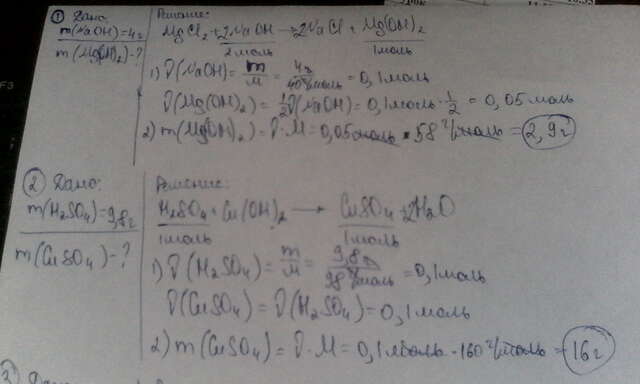 ① Дано:
m(NaOH)=4г
m(Mg(OH)₂)-?
Решение:
MgCl₂+2NaOH→2NaCl+Mg(OH)₂
2моль 1моль
1) ν(NaOH)= m/M = 4г/40г/моль = 0,1моль
ν(Mg(OH)₂)= 1/2ν(NaOH)=0,1моль·1/2 = 0,05моль
2) m(Mg(OH)₂)=ν·M=0,05моль·58г/моль=2,9г
② Дано:
m(H₂SO₄)=9,8г
m(CuSO₄)-?
Решение:
H₂SO₄+Cu(OH)₂→CuSO₄+2H₂O
1моль 1моль
1) ν(H₂SO₄)= m/M = 9,8г/98г/моль =0,1моль
ν(CuSO₄)=ν(H₂SO₄)=0,1моль
2) m(CuSO₄)=ν·M=0,1моль·160г/моль=16г